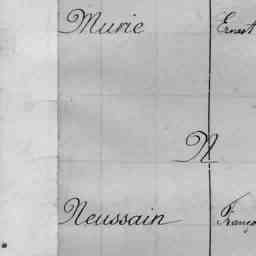 Murie Ernest
N
Neussain Franço